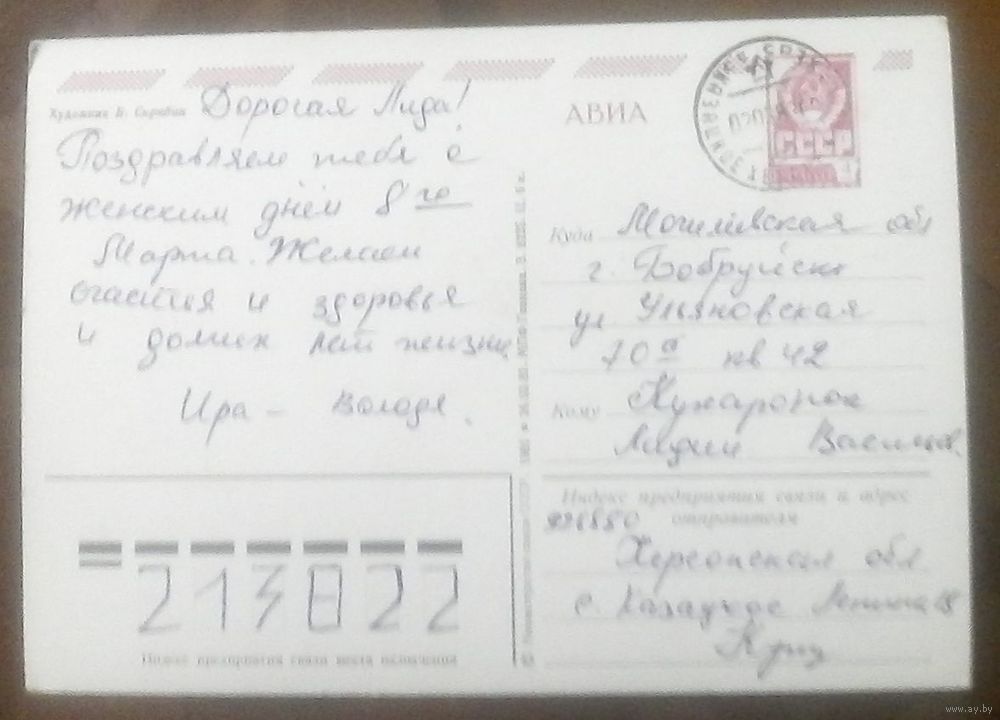 Художник Б. Скрябин
Дорогая Лида!
Поздравляем тебя с
женским днём 8 го
Марта. Желаем
счастья и здоровья
и долгих лет жизни
Ира - Володя.
АВИА
СССР
Куда Могилёвская обл
г. Бобруйск
ул Ульяновская
70 а кв 42
Кому
Лидии Васильев.
Индекс предприятия связи и адрес
отправителя
Херсонская обл
с. Ленина
213822
Индекс предприятия связи места назначения
www.ay.by